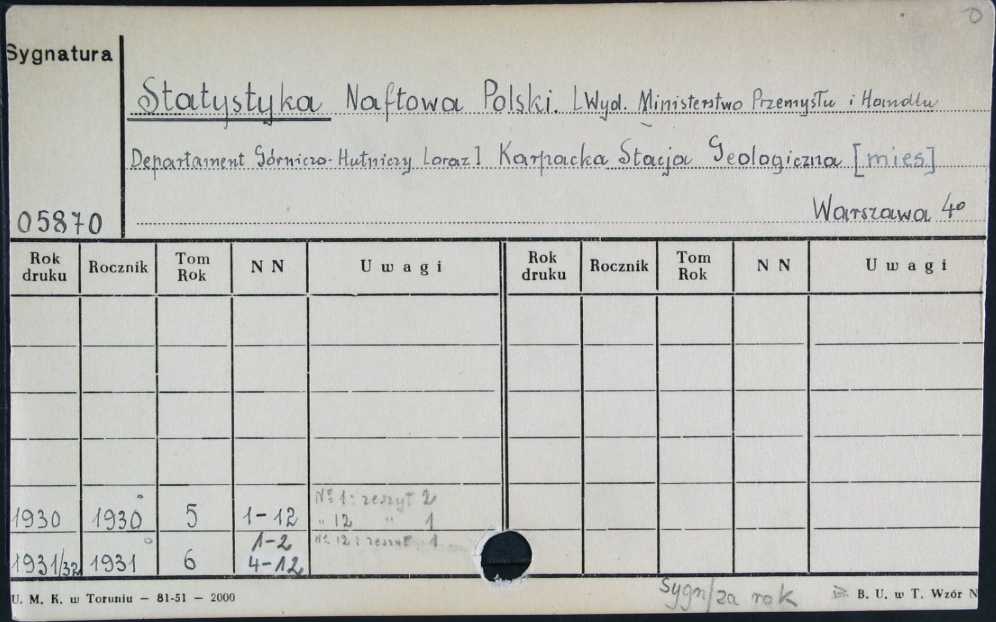 Sygnatura
Statystyka Naftowa Polski. [Wyd. Ministerstwo Przemysłu i Handlu
Departament Górniczo-Hutniczy [oraz] Karpacka Stacja Geologiczna [mies]
05870 Warszawa 4°
Rok druku Rocznik Tom Rok N N Uwagi Rok druku Rocznik Tom Rok N N Uwagi
1930 1930 5 1-12 № 1: zeszyt 2
„ 12 „ 1
1931/32 1931 6 1-2 4-12 № 12: zeszyt 1
Sygn/za rok
U. M. K. w Toruniu — 81-51 — 2000 B. U. w T. Wzór N